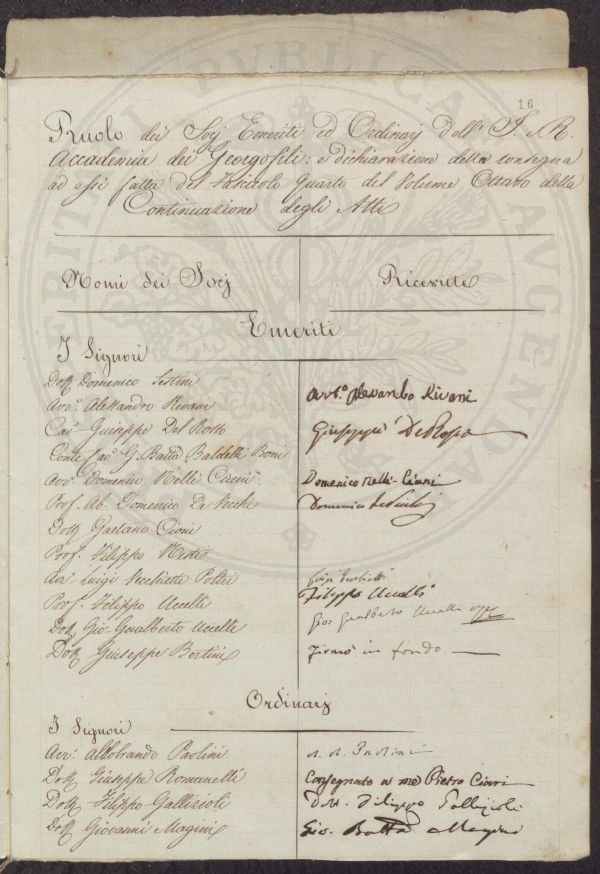 16
Ruolo dei Socj Emeriti ed Ordinarj dell' I. e R.
Accademia dei Georgofili; e dichiarazione della consegna
ad essi fatta del Fascicolo Quarto del Volume Ottavo della
Continuazione degli Atti
Nomi dei Socj
Ricevute
Emeriti
I Signori
Dott. Domenico Sestini
Avv.º Alessandro Rivani Avv.º Alessandro Rivani
Cav.r Giuseppe Del Rosso Giuseppe Del Rosso
Conte Cav. G. Batta Baldelli Boni
Avv.º Domenico Nelli Ciani Domenico Nelli-Ciani
Prof. Ab. Domenico De Vecchi Domenico
Dott. Gaetano Cioni
Prof. Filippo Nesti
Avv. Luigi Vecchietti Poltri Luigi Vecchietti
Prof. Filippo Uccelli Filippo Uccelli
Dott. Gio. Gualberto Uccelli Gio. Gualberto Uccelli
Dott. Giuseppe Bertini Firmò in fondo
Ordinarj
I Signori
Avv. Aldobrando Paolini A. Paolini
Dott. Giuseppe Romanelli Consegnato a me Pietro Ciari
Dott. Filippo Gallizioli Dott. Filippo Gallizioli
Dott. Giovanni Magini Gio. Batta Magini